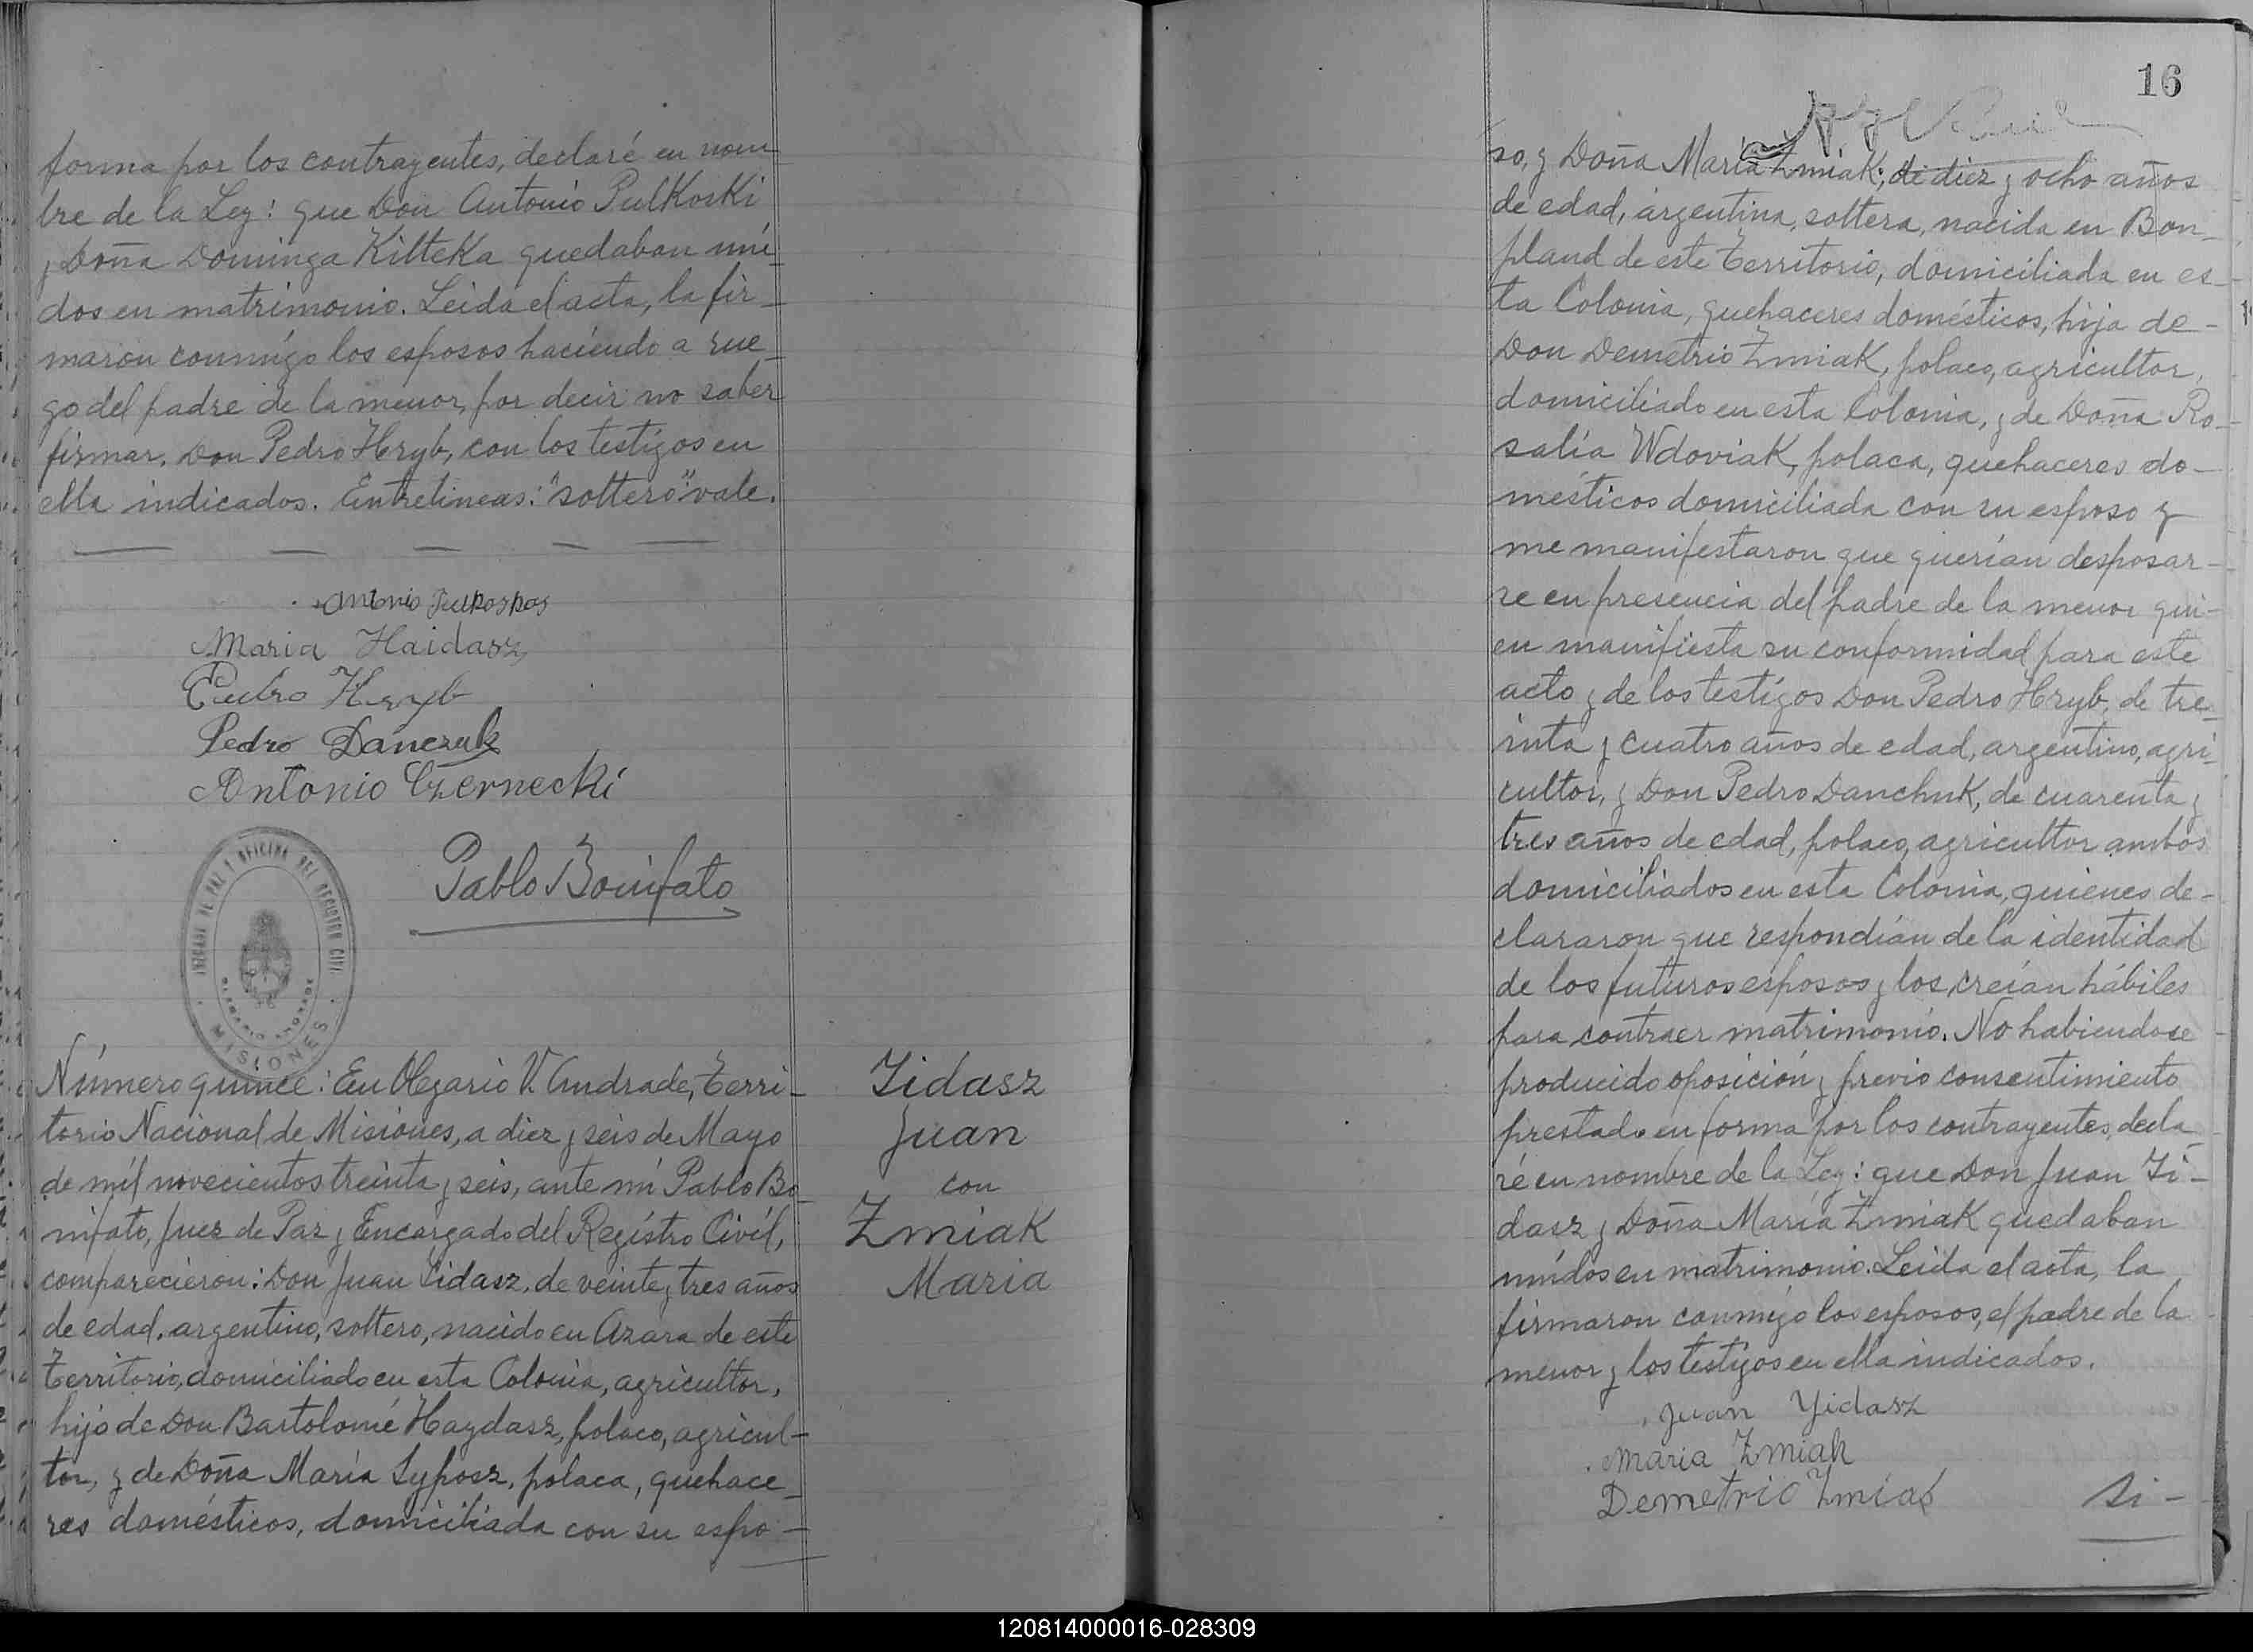 forma por los contrayentes, declaré en nom-
bre de la Ley: que Don Antonio Pulkoski
y Doña Dominga Kilteka quedaban uni-
dos en matrimonio. Leida el acta, la fir-
maron conmigo los esposos haciendo a rue-
go del padre de la menor, por decir no saber
firmar, Don Pedro Hryb, con los testigos en
ella indicados. Entrelineas: "soltero": vale.
Antonio
Maria Haidasz
Pedro Hryb
Pedro Danczuk
Antonio Czernecki
Pablo Bonifato
JUZGADO DE PAZ Y OFICINA DEL REGISTRO CIVIL
OLEGARIO ANDRADE
MISIONES
Número quince: En Olegario V. Andrade, Terri-
torio Nacional de Misiones, a diez y seis de Mayo
de mil novecientos treinta y seis, ante mi Pablo Bo-
nifato, Juez de Paz y Encargado del Registro Civil,
comparecieron: Don Juan Yidasz, de veinte y tres años
de edad, argentino, soltero, nacido en Azara de este
Territorio, domiciliado en esta Colonia, agricultor,
hijo de Don Bartolomé Haydasz, polaco, agricul-
tor, y de Doña María Syposz, polaca, quehace-
res domésticos, domiciliada con su espo-
Yidasz
Juan
con
Zmiak
Maria
16
so, y Doña María Zmiak, de diez y ocho años
de edad, argentina, soltera, nacida en Bon-
pland de este Territorio, domiciliada en es-
ta Colonia, quehaceres domésticos, hija de-
Don Demetrio Zmiak, polaco, agricultor,
domiciliado en esta Colonia, y de Doña Ro-
salía Wdoviak, polaca, quehaceres do-
mésticos domiciliada con su esposo y
me manifestaron que querían desposar-
se en presencia del padre de la menor qui-
en manifiesta su conformidad para este
acto y de los testigos Don Pedro Hryb, de tre-
inta y cuatro años de edad, argentino, agri-
cultor, y Don Pedro Danchuk, de cuarenta y
tres años de edad, polaco, agricultor ambos
domiciliados en esta Colonia, quienes de-
clararon que respondían de la identidad
de los futuros esposos y los creían hábiles
para contraer matrimonio. No habiendose
producido oposición y previo consentimiento
prestado en forma por los contrayentes, decla-
ré en nombre de la Ley: que Don Juan Yi-
dasz y Doña María Zmiak quedaban
unidos en matrimonio. Leida el acta, la
firmaron conmigo los esposos, el padre de la
menor y los testigos en ella indicados.
Juan Yidasz
Maria Zmiak
Demetrio Zmiak
Si-
120814000016-028309